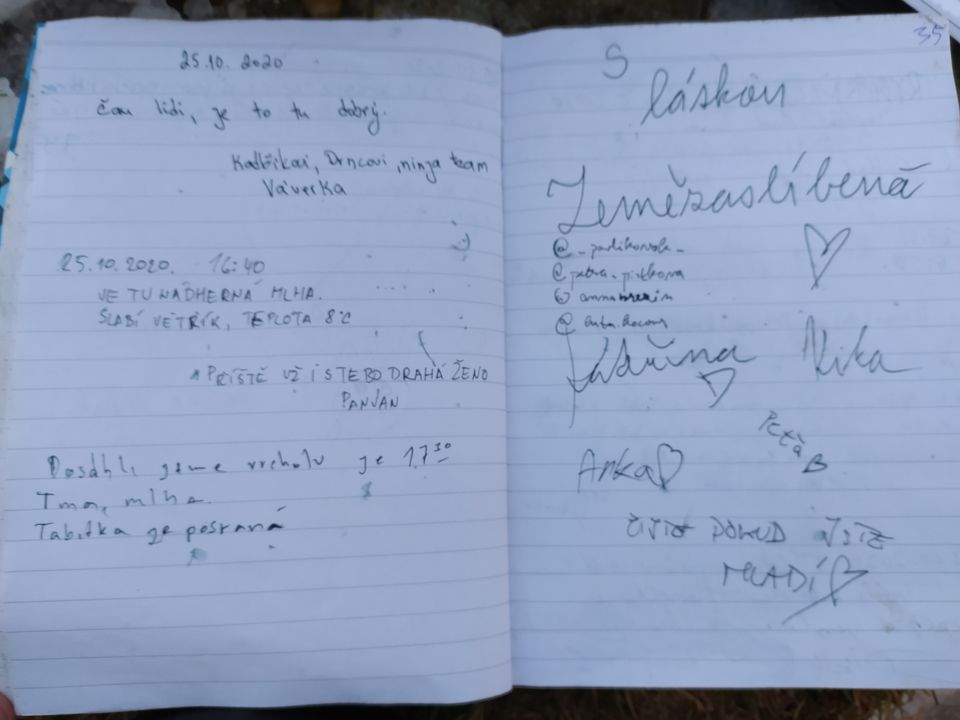 25.10. 2020
čau lidi, je to tu dobrý.
Drncovi, ninja team
Vaverka
:)
25.10.2020. 16:40
JE TU NÁDHERNÁ MLHA.
SLABÍ VĚTŘÍK, TEPLOTA 8°C
PŘÍŠTĚ UŽ I S TEBO DRAHÁ ŽENO
PANJAN
Dosáhli jsme vrcholu je 17 30
Tma, mlha.
Tabitka je posraná
35
S
láskou
Zemězaslíbená
@
@petra_
@
@
Nika
Anka
Peťa
B
MLADÍ